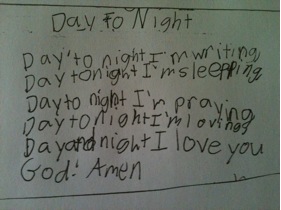 Day to Night
Day to night I'm writing
Day tonight I'm sleepping
Day to night I'm praying
Day to night I'm lovings
Day and night I love you
God. Amen